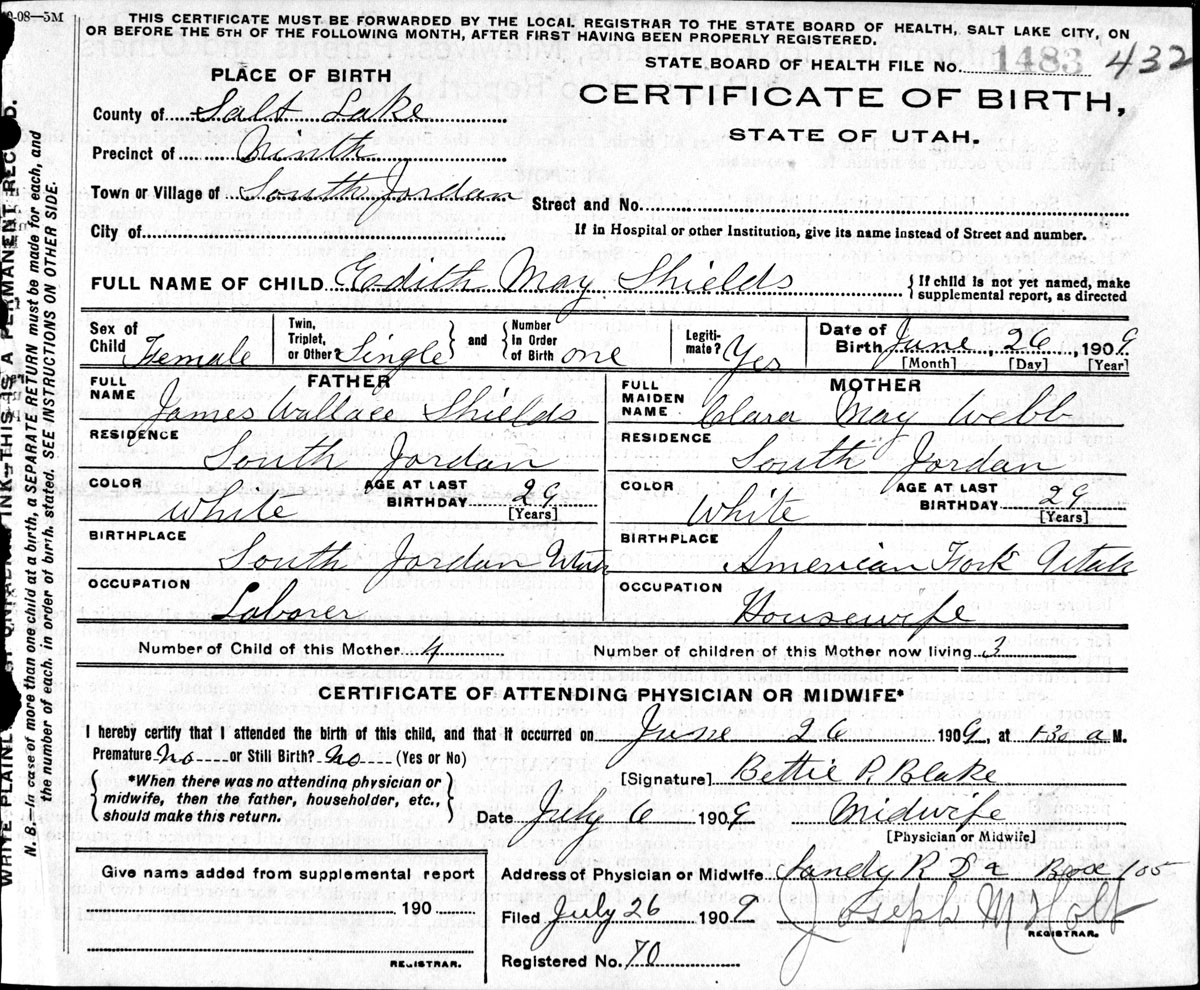 -08—5M
THIS CERTIFICATE MUST BE FORWARDED BY THE LOCAL REGISTRAR TO THE STATE BOARD OF HEALTH, SALT LAKE CITY, ON
OR BEFORE THE 5TH OF THE FOLLOWING MONTH, AFTER FIRST HAVING BEEN PROPERLY REGISTERED.
STATE BOARD OF HEALTH FILE No. 1483 432
PLACE OF BIRTH
CERTIFICATE OF BIRTH,
STATE OF UTAH.
County of Salt Lake
Precinct of Ninth
Town or Village of South Jordan
Street and No.
City of
If in Hospital or other Institution, give its name instead of Street and number.
FULL NAME OF CHILD Eadith May Shields { If child is not yet named, make supplemental report, as directed
Sex of Child Female Twin, Triplet, or Other? Single } and { Number In Order of Birth one Legiti-mate? Yes Date of Birth June, 26, 1909
[Month] [Day] [Year]
FATHER
FULL NAME James Wallace Shields
RESIDENCE South Jordan
COLOR White AGE AT LAST BIRTHDAY 29 [Years]
BIRTHPLACE South Jordan Utah
OCCUPATION Laborer
MOTHER
FULL MAIDEN NAME Clara May Webb
RESIDENCE South Jordan
COLOR White AGE AT LAST BIRTHDAY 29 [Years]
BIRTHPLACE American Fork Utah
OCCUPATION Housewife
Number of Child of this Mother 4 Number of children of this Mother now living 3
CERTIFICATE OF ATTENDING PHYSICIAN OR MIDWIFE*
I hereby certify that I attended the birth of this child, and that it occurred on June 26 1909, at 1-30 a M.
Premature no or Still Birth? no (Yes or No)
{ *When there was no attending physician or midwife, then the father, householder, etc., should make this return. }
[Signature] Bettie P. Blake
Date July 6 1909 Midwife
[Physician or Midwife]
Give name added from supplemental report
190
REGISTRAR.
Address of Physician or Midwife Sandy R D 2 Box 105
Filed July 26 1909 Joseph M Holt
REGISTRAR.
Registered No. 70
WRITE PLAINLY UNFADING INK—THIS IS A PERMANENT RECORD.
N. B.—In case of more than one child at a birth, a SEPARATE RETURN must be made for each, and
the number of each, in order of birth, stated. SEE INSTRUCTIONS ON OTHER SIDE.